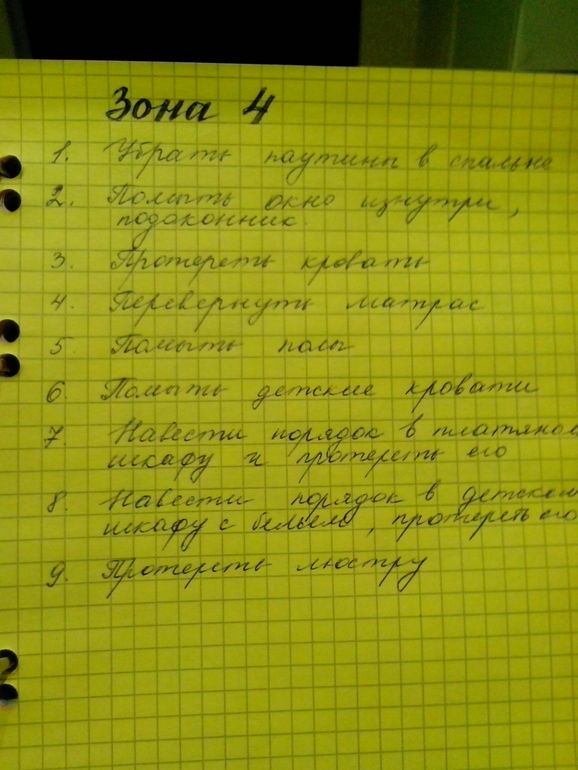 Зона 4
1. Убрать паутины в спальне
2. Помыть окно изнутри,
подоконник.
3. Протереть кровать
4. Перевернуть матрас
5. Помыть полы
6. Помыть детские кровати
7 Навести порядок в платяном
шкафу и протереть его
8. Навести порядок в детском
шкафу с бельем, протереть его
9. Протереть люстру